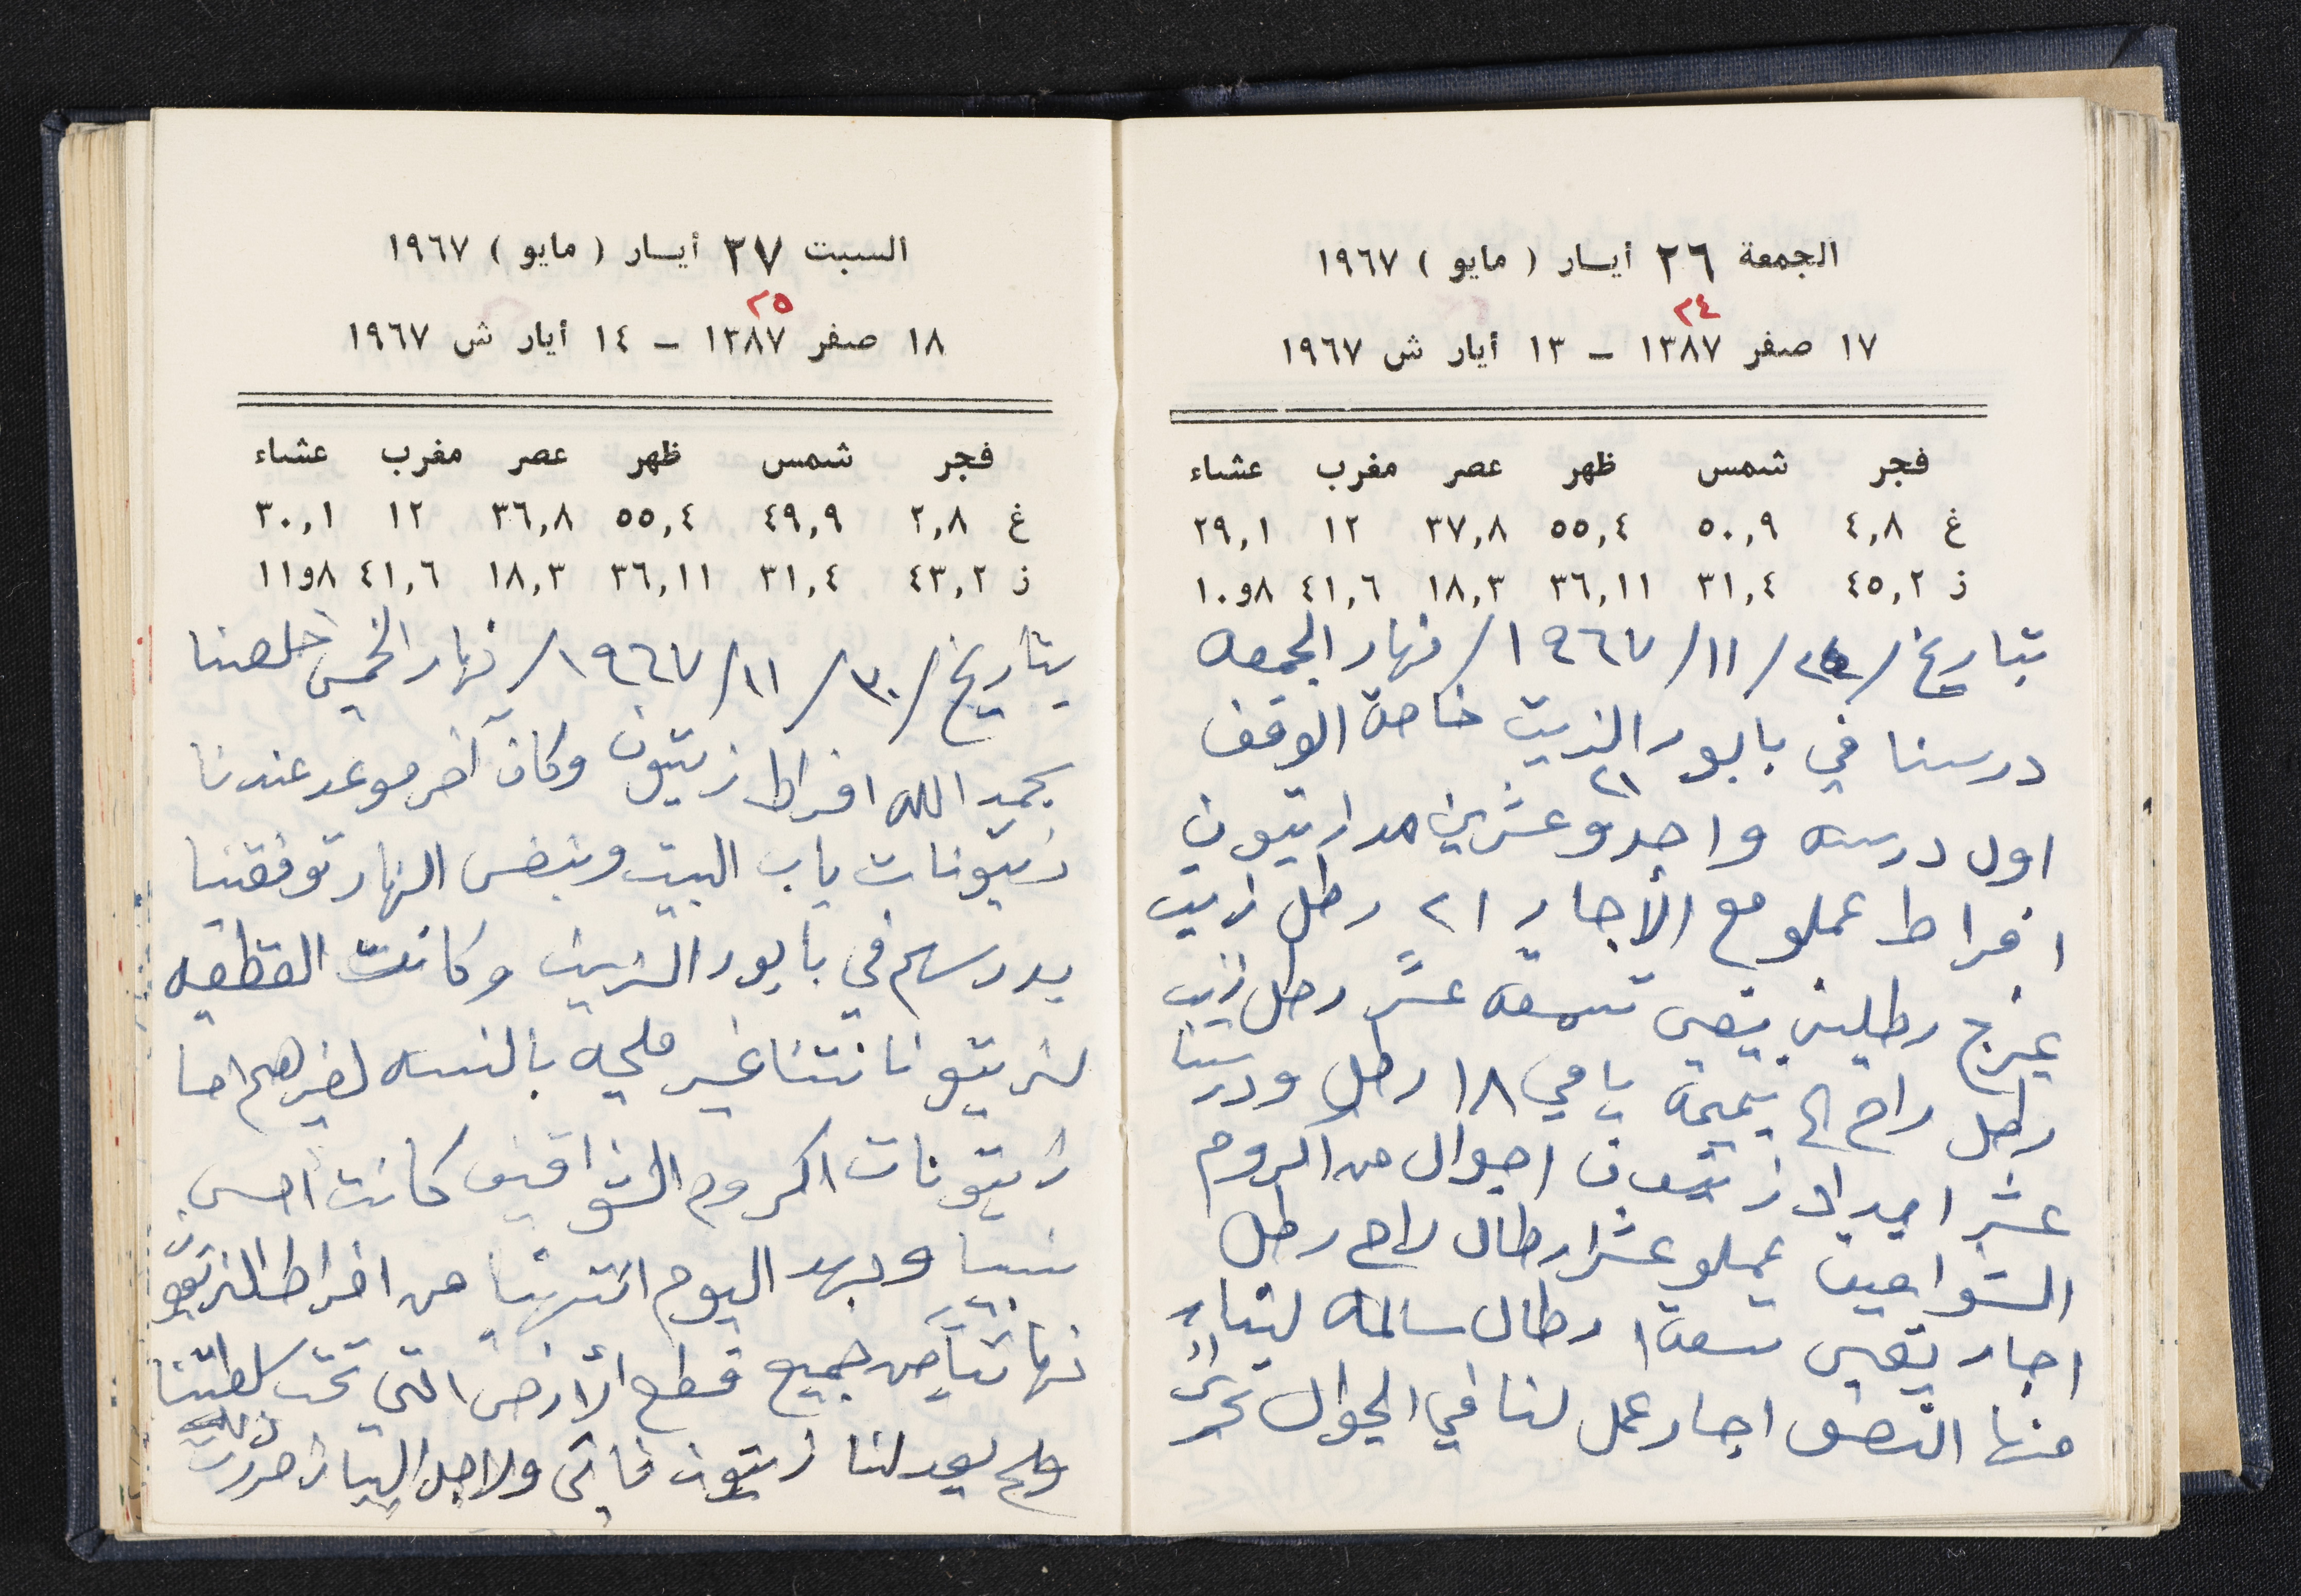 الجمعة ٢٦ أيار ( مايو ) ١٩٦٧
٢٤
١٧ صفر ١٣٨٧ – ١٣ أيار ش ١٩٦٧
فجر شمس ظهر عصر مغرب عشاء
غ ٤,٨ ٥٠,٩ ٥٥,٤ ٣٧,٨ ١٢ ٢٩,١
ز ٤٥,٢ ٣١,٤ ٣٦,١١ ١٨,٣ ٤١,٦ ٨و١٠
بتاريخ / ١١/ ١٩٦٧/ نهار الجمعه
درسنا في بابور الزيت خاصة الوقف
٢١
اول درسه واحد وعشرين مد زيتون
افراط عملو مع الأجار ٢١ رطل زيت
يخرج رطلين بقي تسعة عشر رطل زيت
رطل راح الى يامي ١٨ رطل ودرسنا
عشر امداد زيتون اجوال من اكروم
الشواقيف عملو عشر ارطال راح رطل
اجار بقي تسعة ارطال سالمه لينا
منها النصف اجار عمل لنا في الجوال
السبت ٢٧ أيار ( مايو ) ١٩٦٧
٢٥
١٨ صفر ١٣٨٧ – ١٤ أيار ش ١٩٦٧
فجر شمس ظهر عصر مغرب عشاء
غ ٢,٨ ٤٩,٩ ٥٥,٤ ٣٦,٨ ١٢ ٣٠,١
ز ٤٣,٢ ٣١,٤ ٣٦,١١ ١٨,٣ ٤١,٦ ٨و١١
بتاريخ /٣٠/ ١١/ ١٩٦٧/ نهار الخميس خلصنا
بحمد الله افراط زيتون وكان آخر موعد عندنا
زيتونات باب البيت وبنفس النهار توفقنا
بدرسهم في بابور الزيت وكانت القطعه
لزيتوناتنا غير مليحه بالنسبه لغيرهم اما
زيتونات اكروم الشواقيف كانت احسن
نسبيا وبهد اليوم انتهينا من افراط الزيتون
نهائيا من جميع قطع الأرض التي تحت سلطتنا
ولم يعد لنا زيتون فاتى ولاجل البيان حررت ذلك